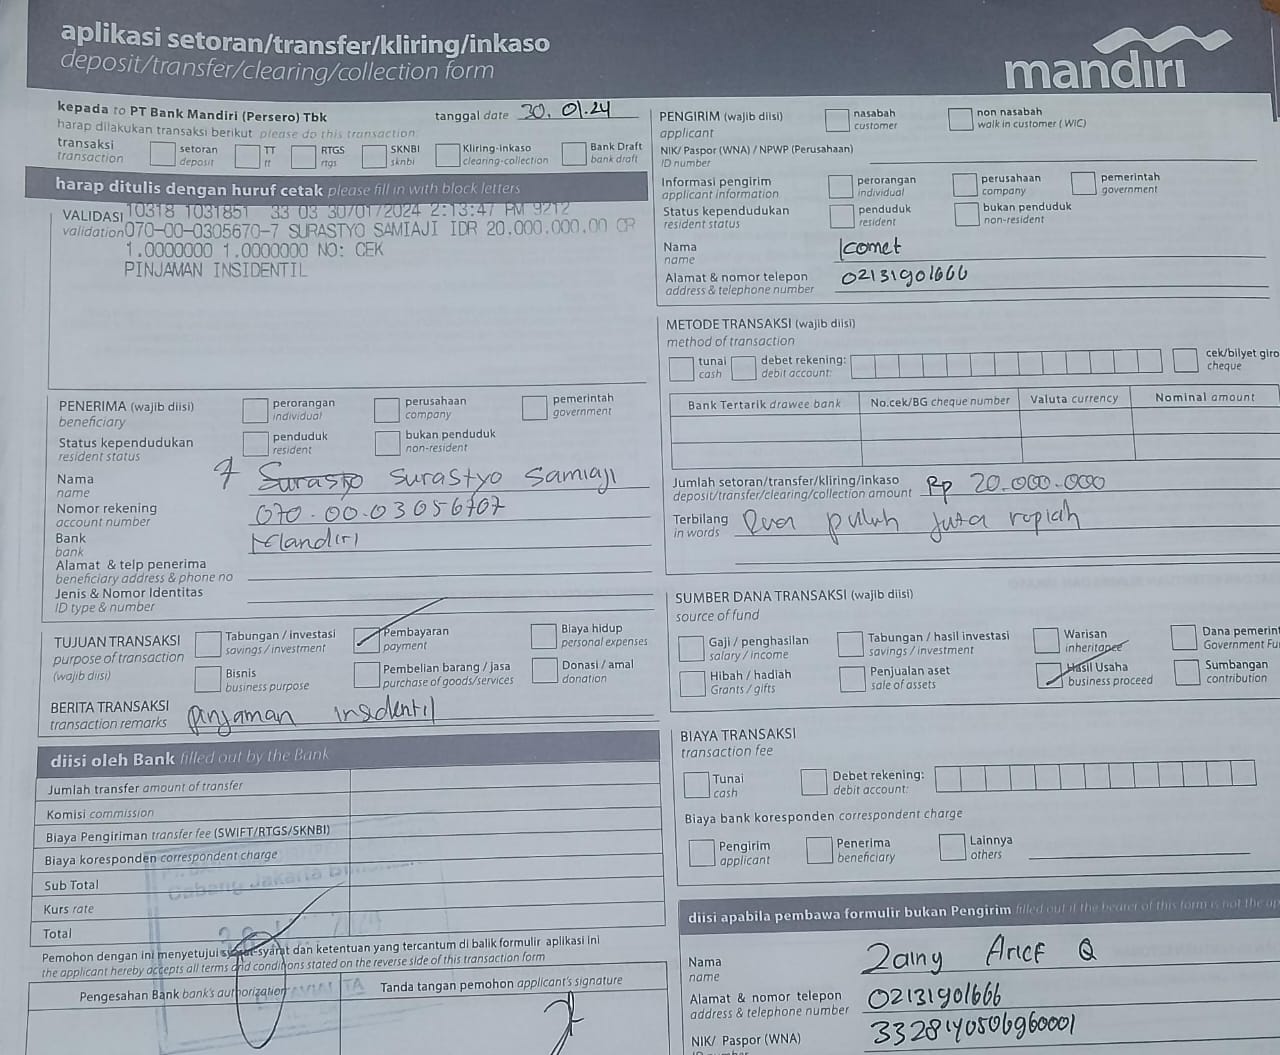 aplikasi setoran/transfer/kliring/inkaso
deposit/transfer/clearing/collection form
mandiri
kepada to PT Bank Mandiri (Persero) Tbk
tanggal date 30. 01.24
harap dilakukan transaksi berikut please do this transaction.
transaksi
transaction
setoran
deposit
TT
tt
RTGS
rtgs
SKNBI
sknbi
Kliring-inkaso
clearing-collection
Bank Draft
bank draft
harap ditulis dengan huruf cetak please fill in with block letters
VALIDASI
validation
10318 1031851 33 03 30/01/2024 2:13:47 PM 9212
070-00-0305670-7 SURASTYO SAMIAJI IDR 20.000.000.00 CR
1.0000000 1.0000000 NO: CEK
PINJAMAN INSIDENTIL
PENERIMA (wajib diisi)
beneficiary
perorangan
individual
perusahaan
company
pemerintah
government
Status kependudukan
resident status
penduduk
resident
bukan penduduk
non-resident
Nama
name
Surastyo Samiaji
Nomor rekening
account number
070.00.03056707
Bank
bank
Mandiri
Alamat & telp penerima
beneficiary address & phone no
Jenis & Nomor Identitas
ID type & number
TUJUAN TRANSAKSI
purpose of transaction
(wajib diisi)
Tabungan / investasi
savings / investment
Pembayaran
payment
Biaya hidup
personal expenses
Bisnis
business purpose
Pembelian barang / jasa
purchase of goods/services
Donasi / amal
donation
BERITA TRANSAKSI
transaction remarks
pinjaman insidentil
diisi oleh Bank filled out by the Bank
Jumlah transfer amount of transfer
Komisi commission
Biaya Pengiriman transfer fee (SWIFT/RTGS/SKNBI)
Biaya koresponden correspondent charge
Sub Total
Kurs rate
Total
Pemohon dengan ini menyetujui syarat-syarat dan ketentuan yang tercantum di balik formulir aplikasi ini
the applicant hereby accepts all terms and conditions stated on the reverse side of this transaction form
Pengesahan Bank bank's authorization
Tanda tangan pemohon applicant's signature
PENGIRIM (wajib diisi)
applicant
nasabah
customer
non nasabah
walk in customer (WIC)
NIK/ Paspor (WNA) / NPWP (Perusahaan)
ID number
Informasi pengirim
applicant information
perorangan
individual
perusahaan
company
pemerintah
government
Status kependudukan
resident status
penduduk
resident
bukan penduduk
non-resident
Nama
name
Komet
Alamat & nomor telepon
address & telephone number
02131901666
METODE TRANSAKSI (wajib diisi)
method of transaction
tunai
cash
debet rekening:
debit account:
cek/bilyet giro
cheque
Bank Tertarik drawee bank
No.cek/BG cheque number
Valuta currency
Nominal amount
Jumlah setoran/transfer/kliring/inkaso
deposit/transfer/clearing/collection amount
Rp 20.000.000
Terbilang
in words
Dua puluh juta rupiah
SUMBER DANA TRANSAKSI (wajib diisi)
source of fund
Gaji / penghasilan
salary / income
Tabungan / hasil investasi
savings / investment
Warisan
inheritance
Dana pemerint
Government Fu
Hibah / hadiah
Grants / gifts
Penjualan aset
sale of assets
Hasil Usaha
business proceed
Sumbangan
contribution
BIAYA TRANSAKSI
transaction fee
Tunai
cash
Debet rekening:
debit account:
Biaya bank koresponden correspondent charge
Pengirim
applicant
Penerima
beneficiary
Lainnya
others
diisi apabila pembawa formulir bukan Pengirim filled out if the bearer of this form is not the ap
Nama
name
Zainy Arief Q
Alamat & nomor telepon
address & telephone number
02131901666
NIK/ Paspor (WNA)
3328140506960001